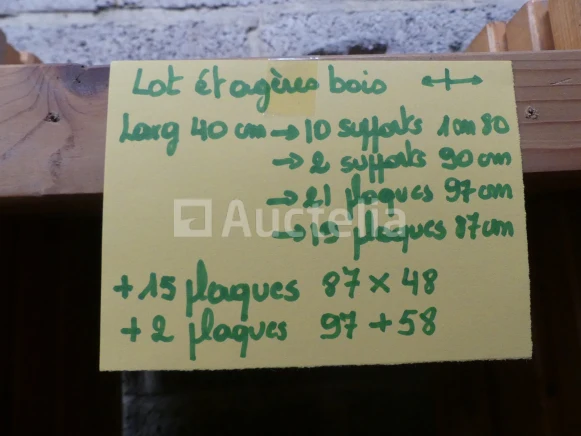 Lot étagères bois ↔
Larg 40 cm → 10 supports 1m80
→ 2 supports 90 cm
→ 21 plaques 97 cm
Auctelia
→ 19 plaques 87 cm
+ 15 plaques 87 x 48
+ 2 plaques 97 + 58